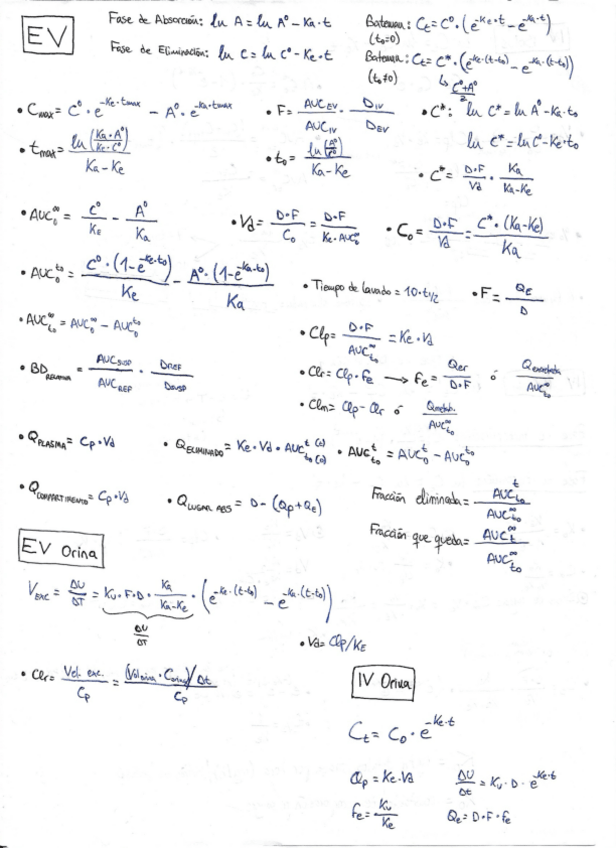 EV
Fase de Absorción: ln A = ln A⁰ - Ka·t
Fase de Eliminación: ln C = ln C⁰ - Ke·t
Bateman: Ct = C⁰·(e^-Ke·t - e^-Ka·t)
(t₀=0)
Bateman: Ct = C*·(e^-Ke·(t-t₀) - e^-Ka·(t-t₀))
(t₀≠0) ↳ (C⁰+A⁰)/2
• Cmax = C⁰·e^-Ke·tmax - A⁰·e^-Ka·tmax
• F = AUC EV / AUC IV · D IV / D EV
• C*: ln C* = ln A⁰ - Ka·t₀
ln C* = ln C⁰ - Ke·t₀
• tmax = ln(Ka·A⁰ / Ke·C⁰) / Ka-Ke
• t₀ = ln(A⁰/C⁰) / Ka-Ke
• C* = D·F / Vd · Ka / Ka-Ke
• AUC₀^∞ = C⁰/KE - A⁰/Ka
• Vd = D·F / C₀ = D·F / Ke·AUC₀^∞
• C₀ = D·F / Vd = C*·(Ka-Ke) / Ka
• AUC₀^t₀ = C⁰·(1-e^-Ke·t₀) / Ke - A⁰·(1-e^-Ka·t₀) / Ka
• Tiempo de lavado = 10·t1/2
• F = QE / D
• AUC t₀^∞ = AUC₀^∞ - AUC₀^t₀
• Clp = D·F / AUC t₀^∞ = Ke·Vd
• BD RELATIVA = AUC SUSP / AUC REF · D REF / D SUSP
• Clr = Clp·fe → fe = Qer / D·F ó Q excretada / AUC t₀^∞
• Clm = Clp - Clr ó Q metab. / AUC t₀^∞
• Q PLASMA = Cp·Vd
• Q ELIMINADO = Ke·Vd·AUC t₀ (0)^t (∞)
• AUC t₀^t = AUC₀^t - AUC₀^t₀
• Q COMPARTIMENTO = Cp·Vd
• Q LUGAR ABS = D - (Qp + QE)
Fracción eliminada = AUC t₀^t / AUC t₀^∞
Fracción que queda = AUC t^∞ / AUC t₀^∞
EV Orina
V EXC = ΔU/ΔT = Ku·F·D · Ka / Ka-Ke · (e^-Ke·(t-t₀) - e^-Ka·(t-t₀))
ΔU/ΔT
• Vd = Clp/KE
• Clr = Vel. exc. / Cp = (Vol orina · C orina)/Δt / Cp
IV Orina
Ct = C₀·e^-Ke·t
Qp = Ke·Vd
ΔU/Δt = Ku·D·e^-Ke·t
fe = Ku / Ke
Qe = D·F·fe